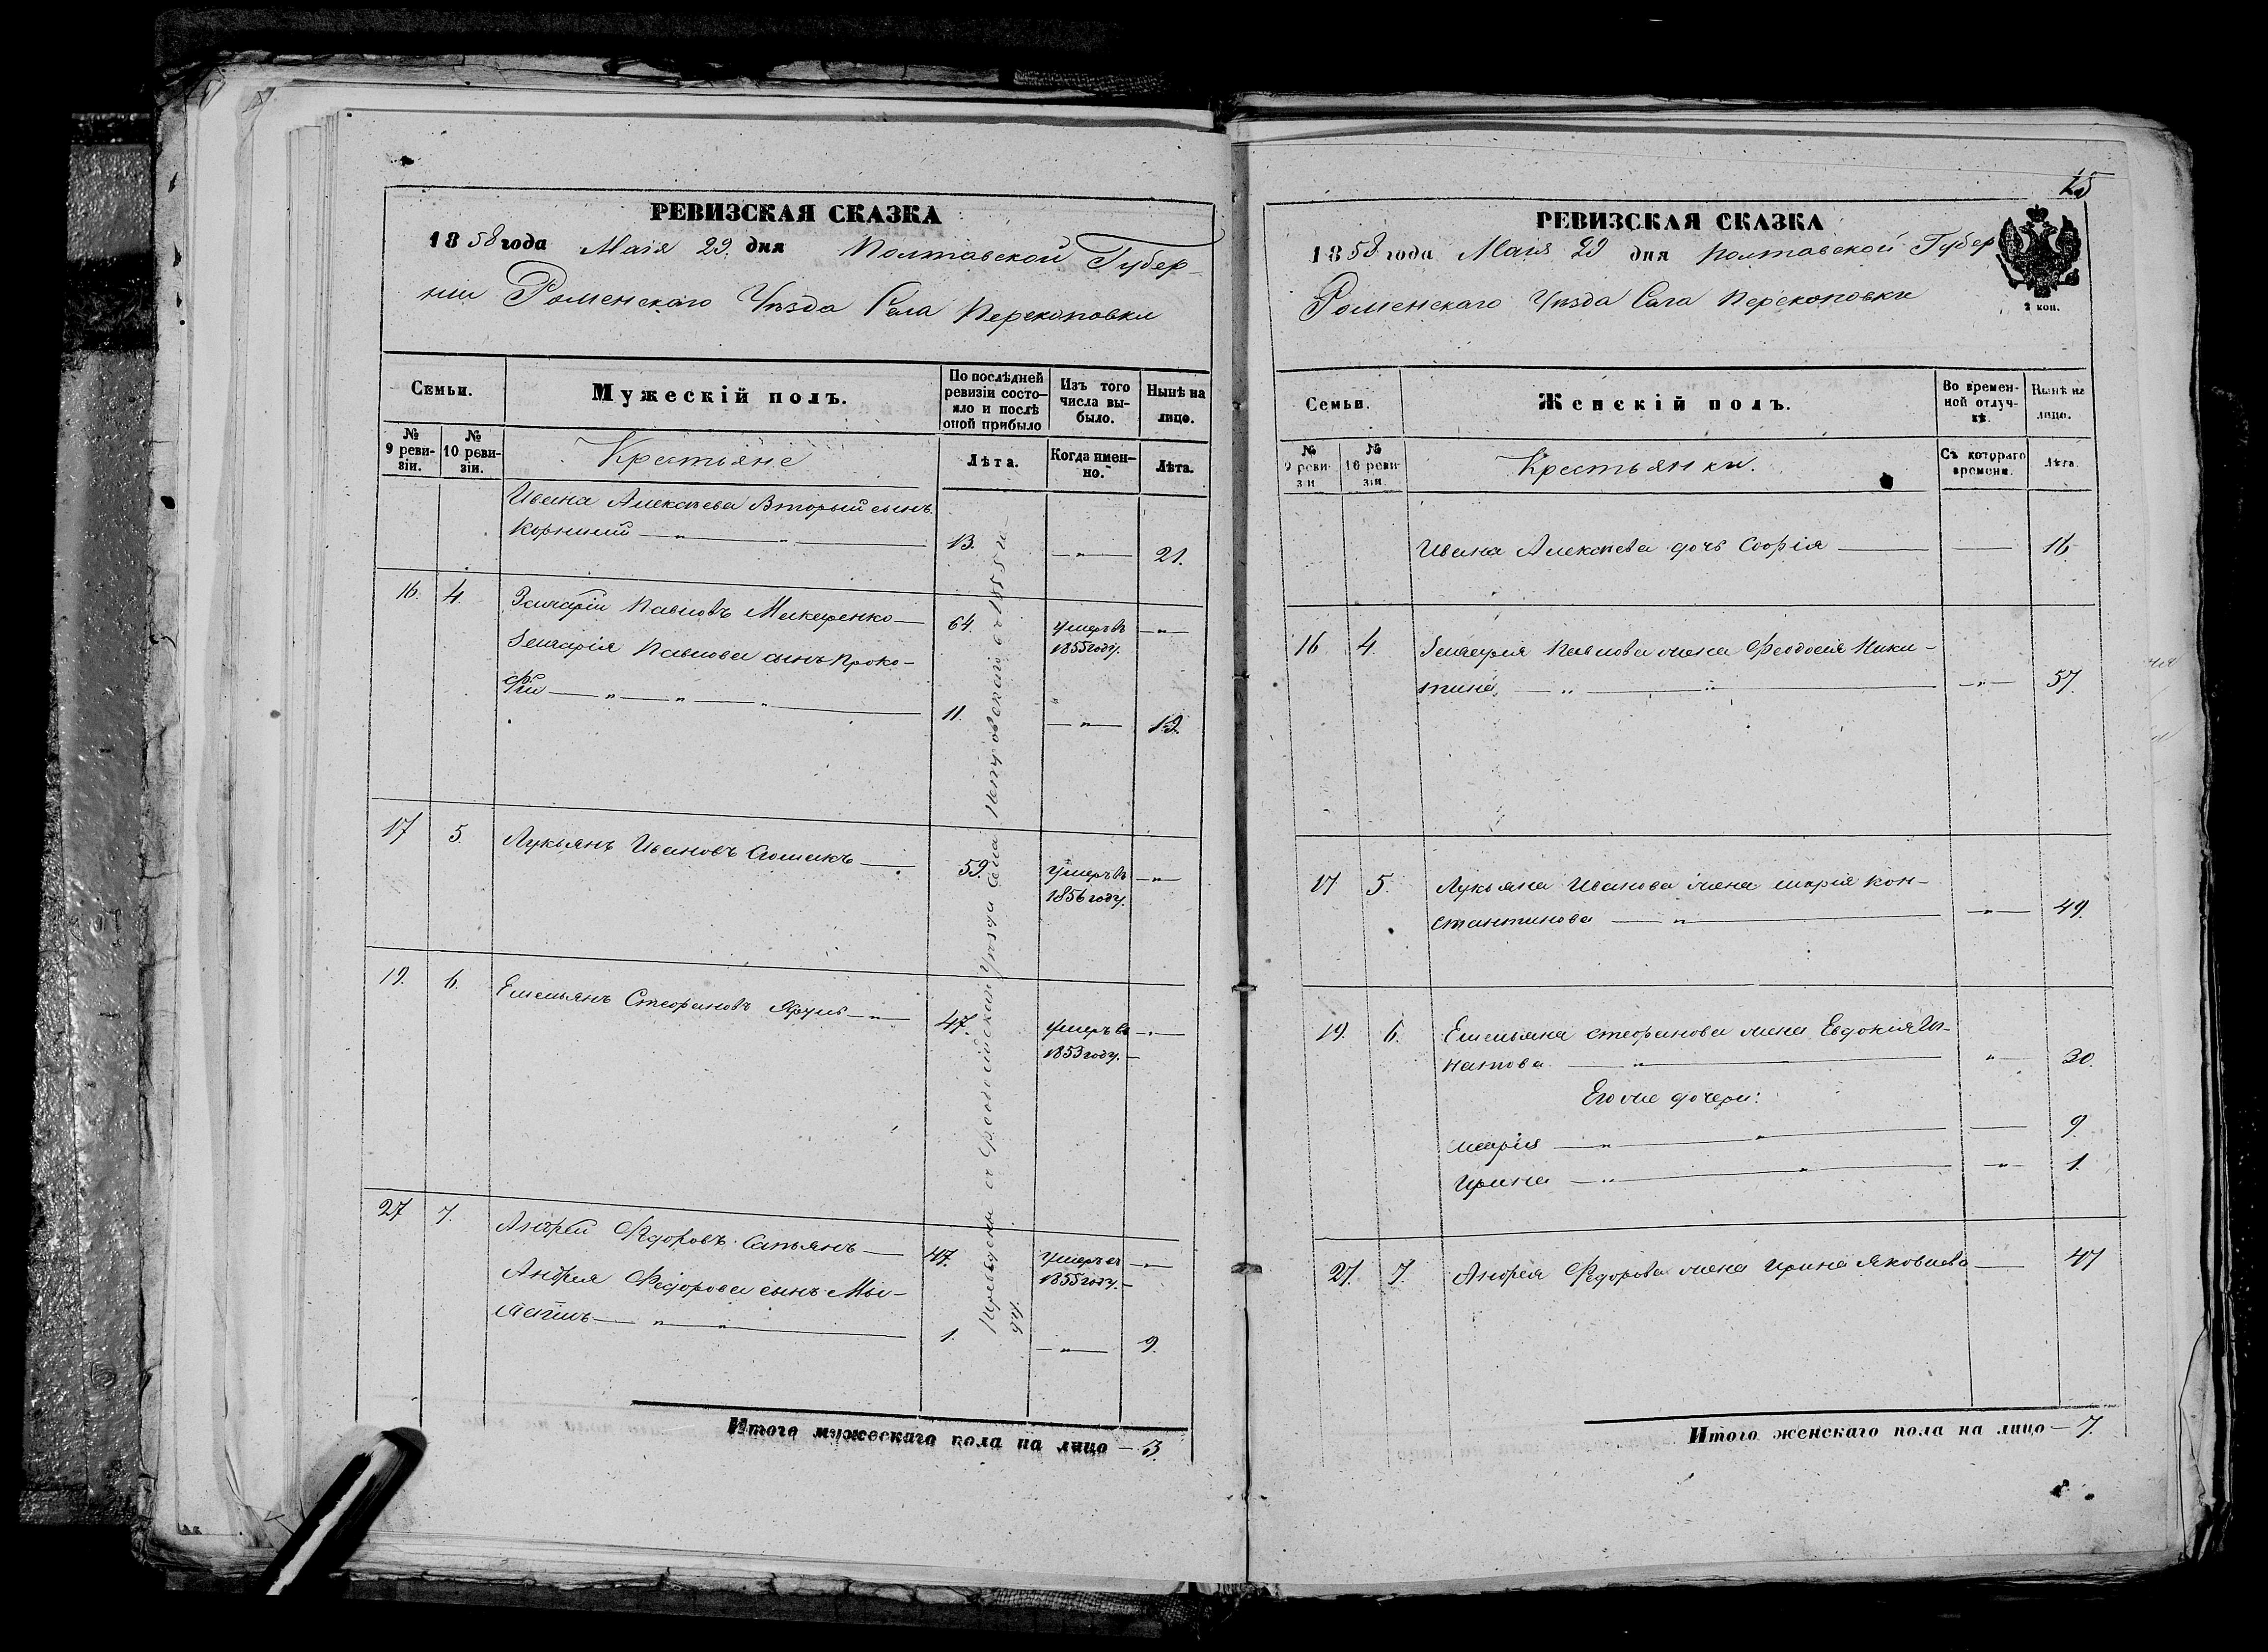 РЕВИЗСКАЯ СКАЗКА
1858 года Маія 29. дня Полтавской Губер-
ніи Роменскаго Уѣзда Села Перекоповки
Семьи.
Мужескій полъ.
По послѣдней ревизіи состо-
яло и послѣ оной прибыло
Изъ того числа вы-
было.
Нынѣ на лицо.
№ 9 реви-
зіи.
№ 10 реви-
зіи.
Крестьяне
Лѣта.
Когда имен-
но.
Лѣта.
Ивана Алексѣева Вторый сынъ
Корнилій — „ — „ — 13. — „ — 21.
16. 4. Захарій Павловъ 64. умеръ въ — „ —
1855 году.
Захарія Павлова сынъ Проко-
фій — „ — „ — „ — 11. — „ — 19.
17 5. Лукьянъ Ивановъ 59. умеръ въ — „ —
1856 году.
19. 6. Емельянъ Стефановъ — „ — 47. умеръ въ — „ —
1853 году. —
27 7. Андрей Федоровъ Сапьянъ — 47. умеръ въ — „ —
1855 году. —
Андрея Федорова сынъ
— „ — „ — 1. — „ — 9.
Переведены изъ Уѣзда Села Петровскаго въ 1855 го-
ду.
Итого мужескаго пола на лицо — 3.
РЕВИЗСКАЯ СКАЗКА
1858 года Маія 29 дня Полтавской Губер
Роменскаго Уѣзда Села Перекоповки
2 коп.
Семьи.
Женскій полъ.
Во времен-
ной отлуч-
кѣ.
Нынѣ на лицо.
№ 9 реви-
зіи
№ 10 реви-
зіи.
Крестьянки.
Съ котораго времени.
Лѣта.
Ивана Алексѣева дочь Софія — — 16.
16 4. Захарія Павлова жена Феодосія Ники-
тина, — „ — „ — — „ — 57.
17 5. Лукьяна Иванова жена Марія Кон-
стантинова — „ — — „ — 49.
19. 6. Емельяна Стефанова жена Евдокія Иг-
натова — „ — „ — 30.
Его же дочери:
Марія — „ — „ — — 9.
Ирина — „ — „ — — „ — 1.
27. 7. Андрея Федорова жена Ирина Яковлева — — 47
Итого женскаго пола на лицо — 7.